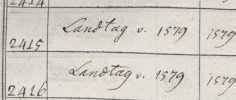 2414
Landtag v. 1579 1579
2415
Landtag v. 1579 1579
2416